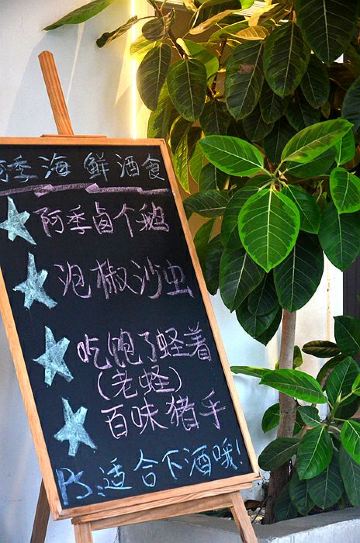 阿季海鲜酒食
阿季卤个鹅
泡椒沙虫
吃跑了蛏着
(老蛏)
百味猪手
PS:适合下酒哦!